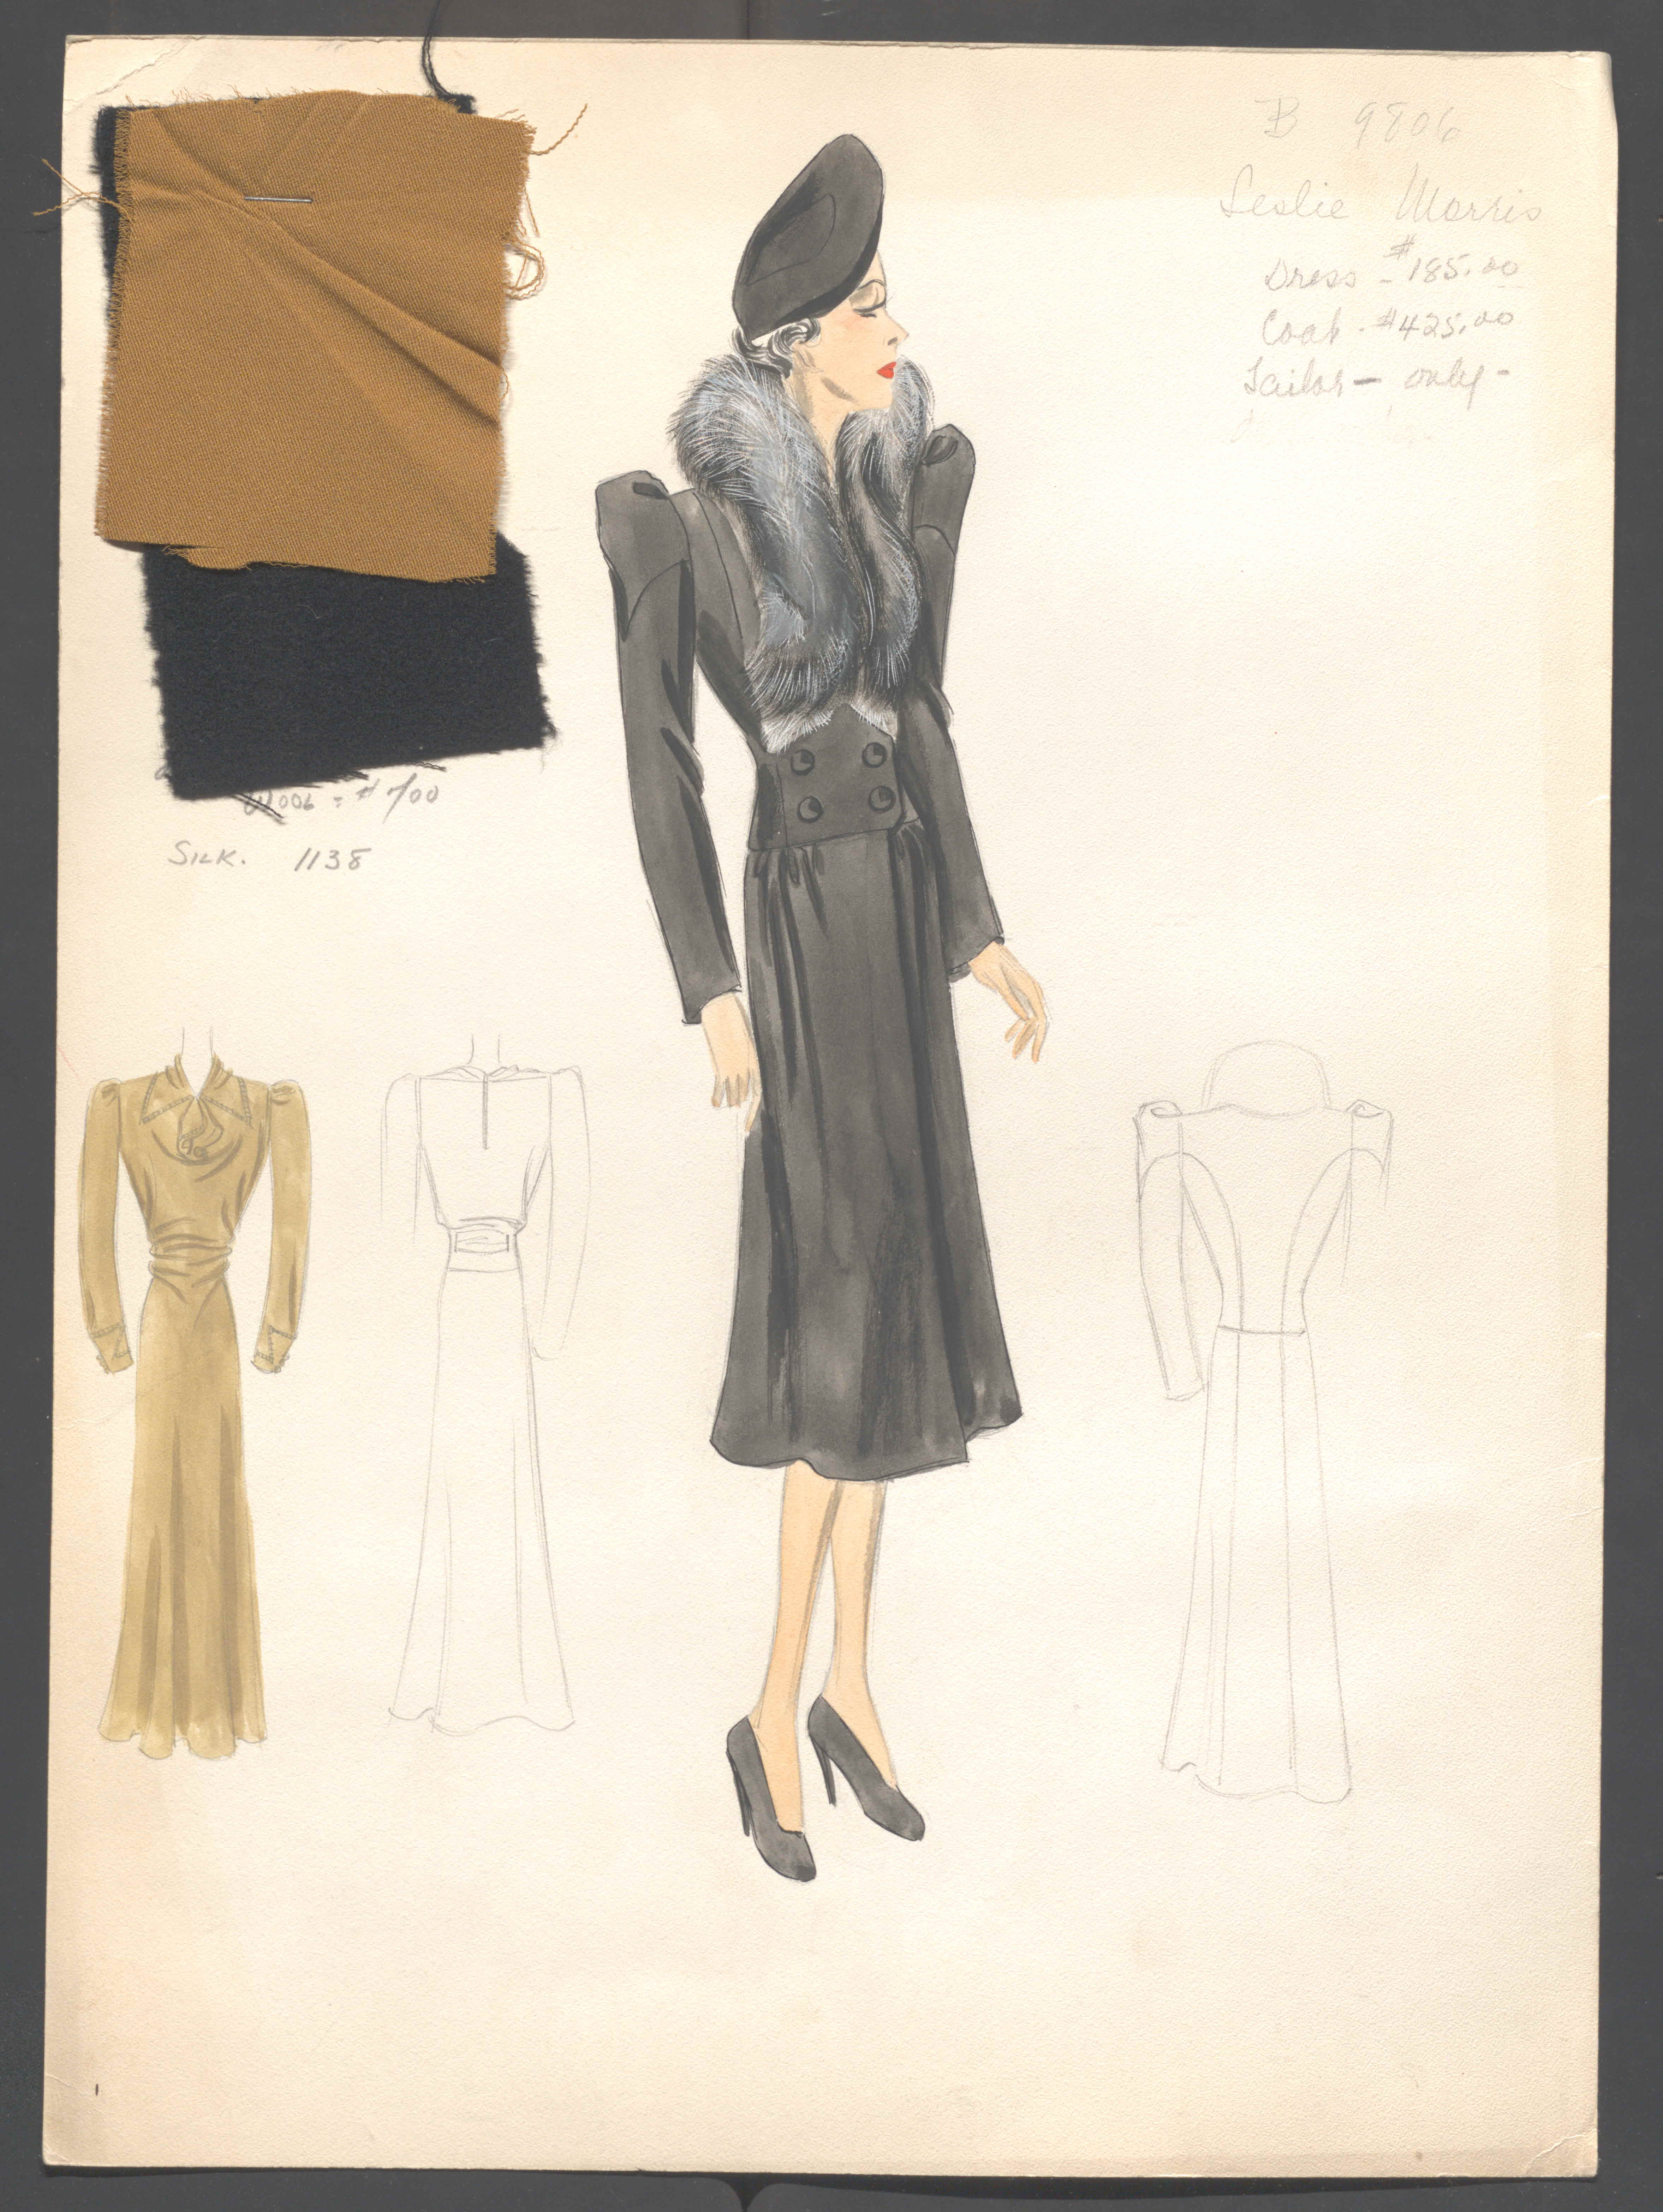 B 9806
Leslie Morris
Dress - $185.00
Coat - $425.00
Tailor - only -
Wool = # 700
SILK. 1138